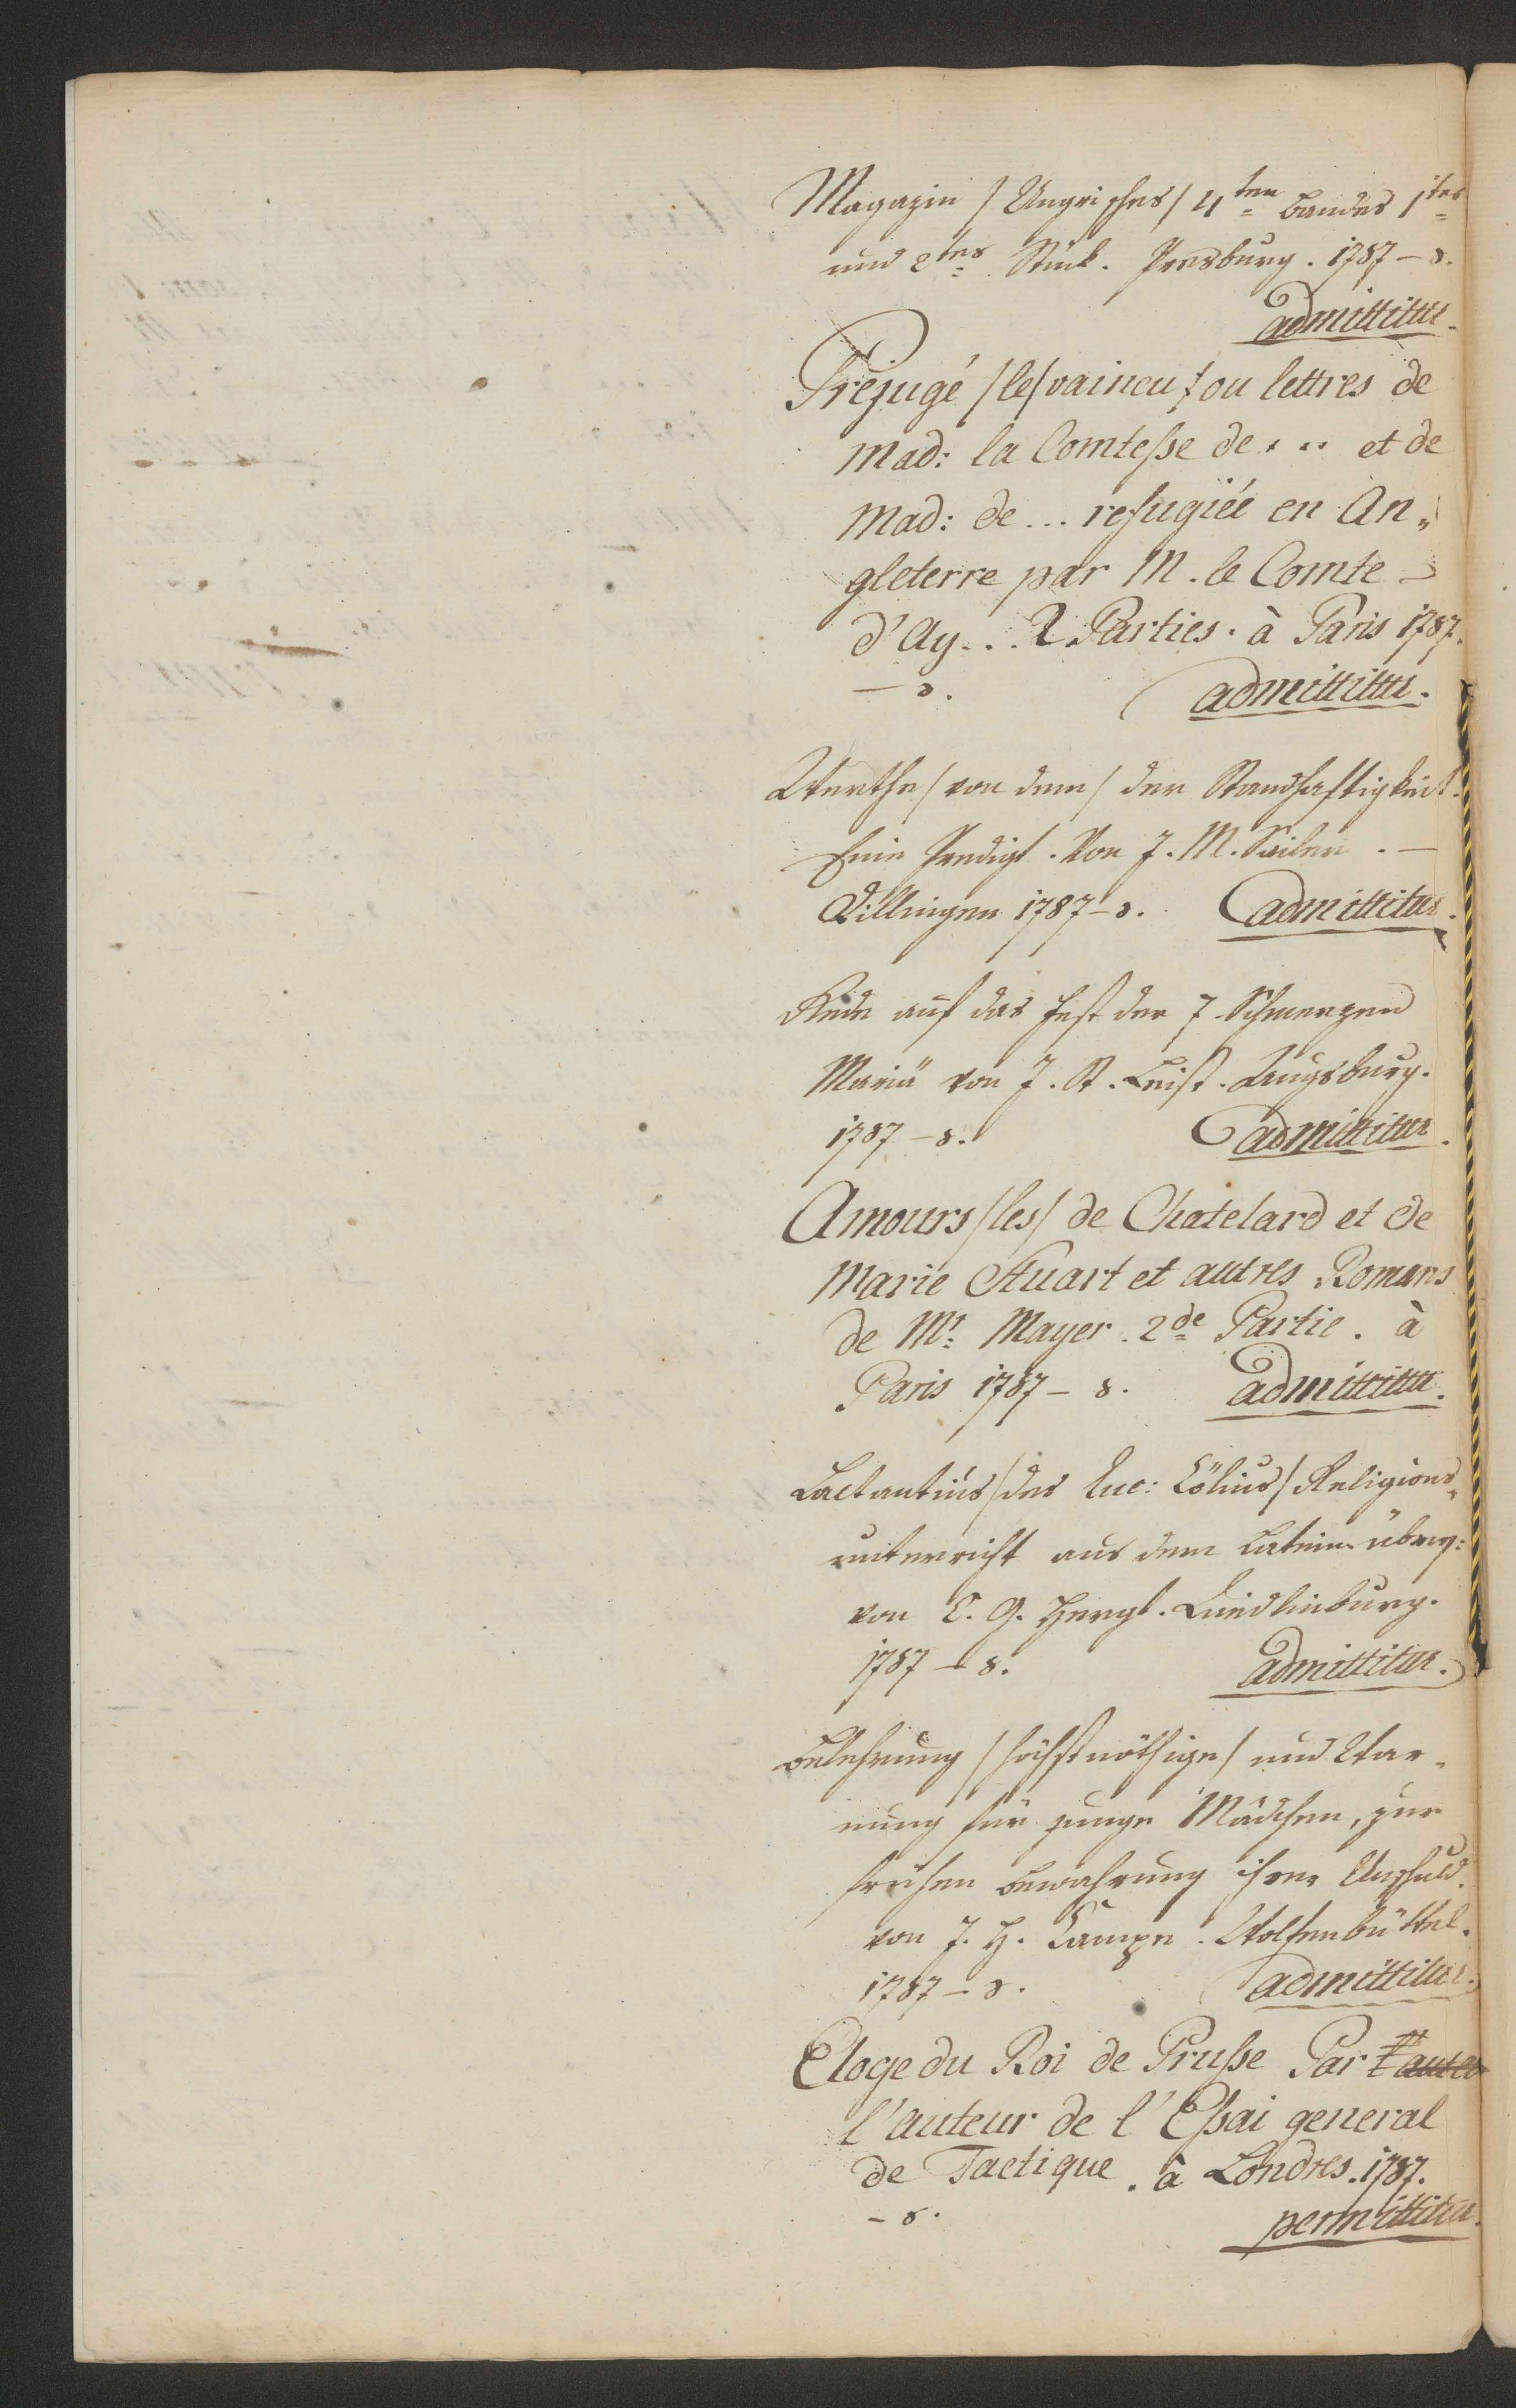 Magazin /Ungrisches/ 4ten Bandes 1tes
und 2tes Stück. Presburg. 1787 – 8.
admittitur.
Préjugé /le/ vaincu / ou lettres de
Mad: la Comtesse de ... et de
Mad: de ... refugiée en An„
gleterre par M. le Comte
d'Ay... 2 Parties. à Paris 1787.
– 8. admittitur.
Werthe /von dem/ der Standhaftigkeit.
Eine Predigt. Von J. M. Sailer. –
Dillingen 1787 – 8. admittitur.
Rede auf das Fest der 7 Schmerzen
Mariä von J. St. Leist. Augsburg.
1787 – 8. admittitur.
Amours /les/ de Chatelard et de
Marie Stuart et autres Romans
de Mr. Mayer. 2de Partie. à
Paris 1787 – 8. admittitur.
Lactantius /des Luc: Cölius/ Religions„
unterricht aus dem Latein. überz:
von C. G. Hergt. Quedlinburg.
1787 – 8. admittitur.
Belehrung /höchstnöthige/ und War„
nung für junge Mädchen, zur
frühen Bewahrung ihrer Unschuld.
von J. H. Campe. Wolfenbüttel.
1787 – 8. admittitur.
Eloge du Roi de Prusse Par l'auteu
l'auteur de l'Essai general
de Tactique. à Londres. 1787.
– 8. permittitur.